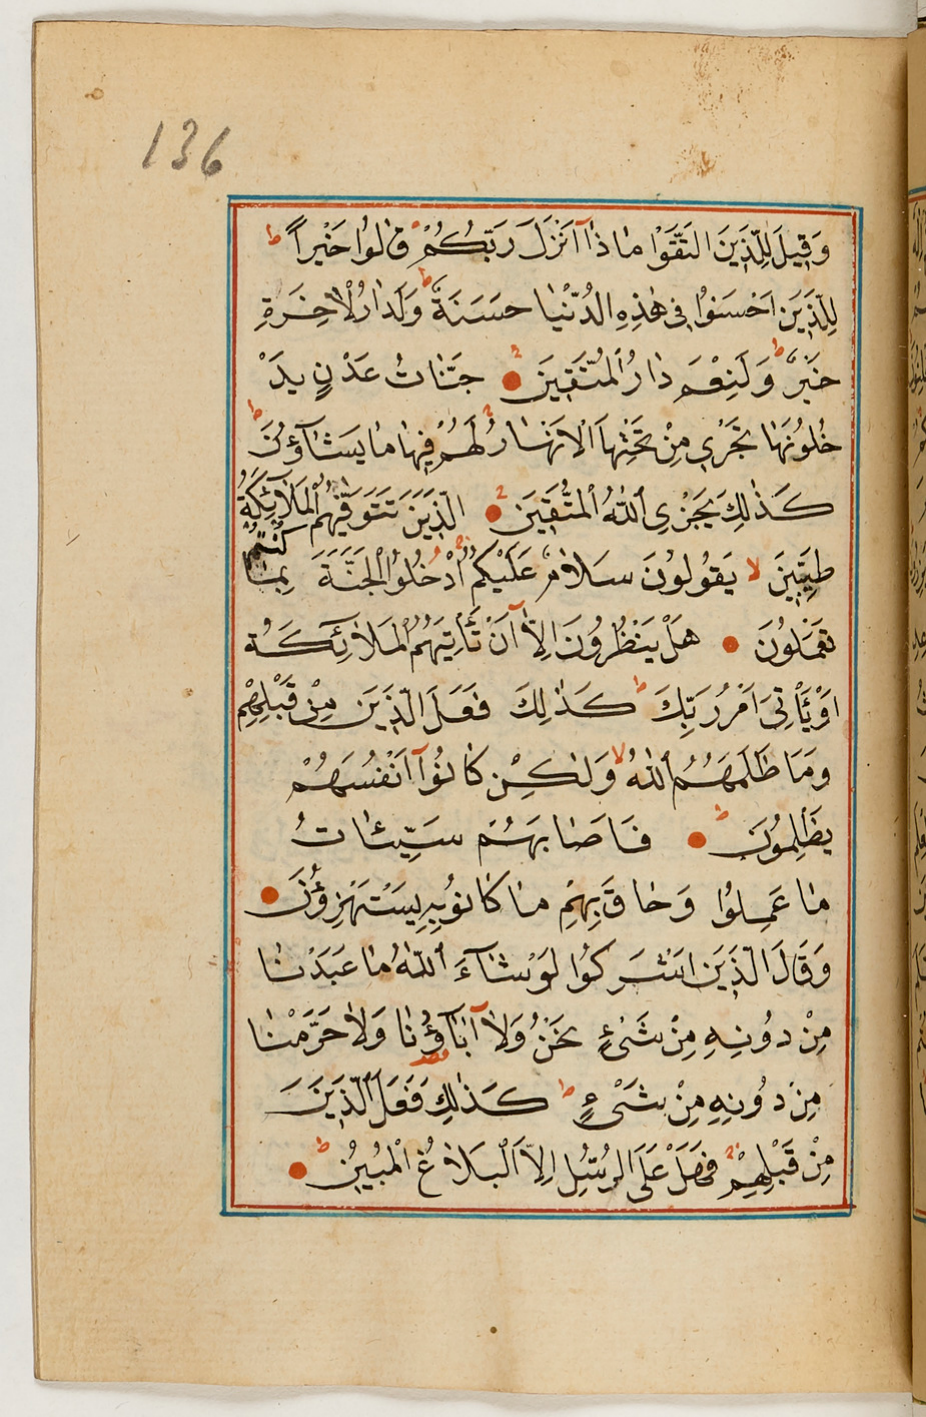 136
وَقِيلَ لِلَّذِينَ اتَّقَوْا مَاذَا اَنْزَلَ رَبُّكُمْ قَالُوا خَيْراً ط
لِلَّذِينَ اَحْسَنُوا فِى هٰذِهِ الدُّنْيَا حَسَنَةٌ ط وَلَدَارُ الْاٰخِرَةِ
خَيْرٌ ط وَلَنِعْمَ دَارُ الْمُتَّقِينَ جَنَّاتُ عَدْنٍ يَدْ
خُلُونَهَا تَجْرِى مِنْ تَحْتِهَا الْاَنْهَارُ لَهُمْ فِيهَا مَا يَشَآؤُنَ ط
كَذٰلِكَ يَجْزِى اللّٰهُ الْمُتَّقِينَ الَّذِينَ تَتَوَفّٰيهُمُ الْمَلَائِكَةُ
طَيِّبِينَ لا يَقُولُونَ سَلَامٌ عَلَيْكُمُ ادْخُلُوا الْجَنَّةَ بِمَا كُنْتُمْ
تَعْمَلُونَ هَلْ يَنْظُرُونَ اِلَّآ اَنْ تَأْتِيَهُمُ الْمَلَائِكَةُ
اَوْ يَأْتِىَ اَمْرُ رَبِّكَ ط كَذٰلِكَ فَعَلَ الَّذِينَ مِنْ قَبْلِهِمْ
وَمَا ظَلَمَهُمُ اللّٰهُ لا وَلٰكِنْ كَانُوآ اَنْفُسَهُمْ
يَظْلِمُونَ ط فَاَصَابَهُمْ سَيِّئَاتُ
مَا عَمِلُوا وَحَاقَ بِهِمْ مَا كَانُو بِهِ يَسْتَهْزِؤُنَ
وَقَالَ الَّذِينَ اَشْرَكُوا لَوْ شَآءَ اللّٰهُ مَا عَبَدْنَا
مِنْ دُونِهِ مِنْ شَىْءٍ نَحْنُ وَلَآ اٰبَآؤُنَا وَلَا حَرَّمْنَا
مِنْ دُونِهِ مِنْ شَىْءٍ ط كَذٰلِكَ فَعَلَ الَّذِينَ
مِنْ قَبْلِهِمْ فَهَلْ عَلَى الرُّسُلِ اِلَّا الْبَلَاغُ الْمُبِينُ ط